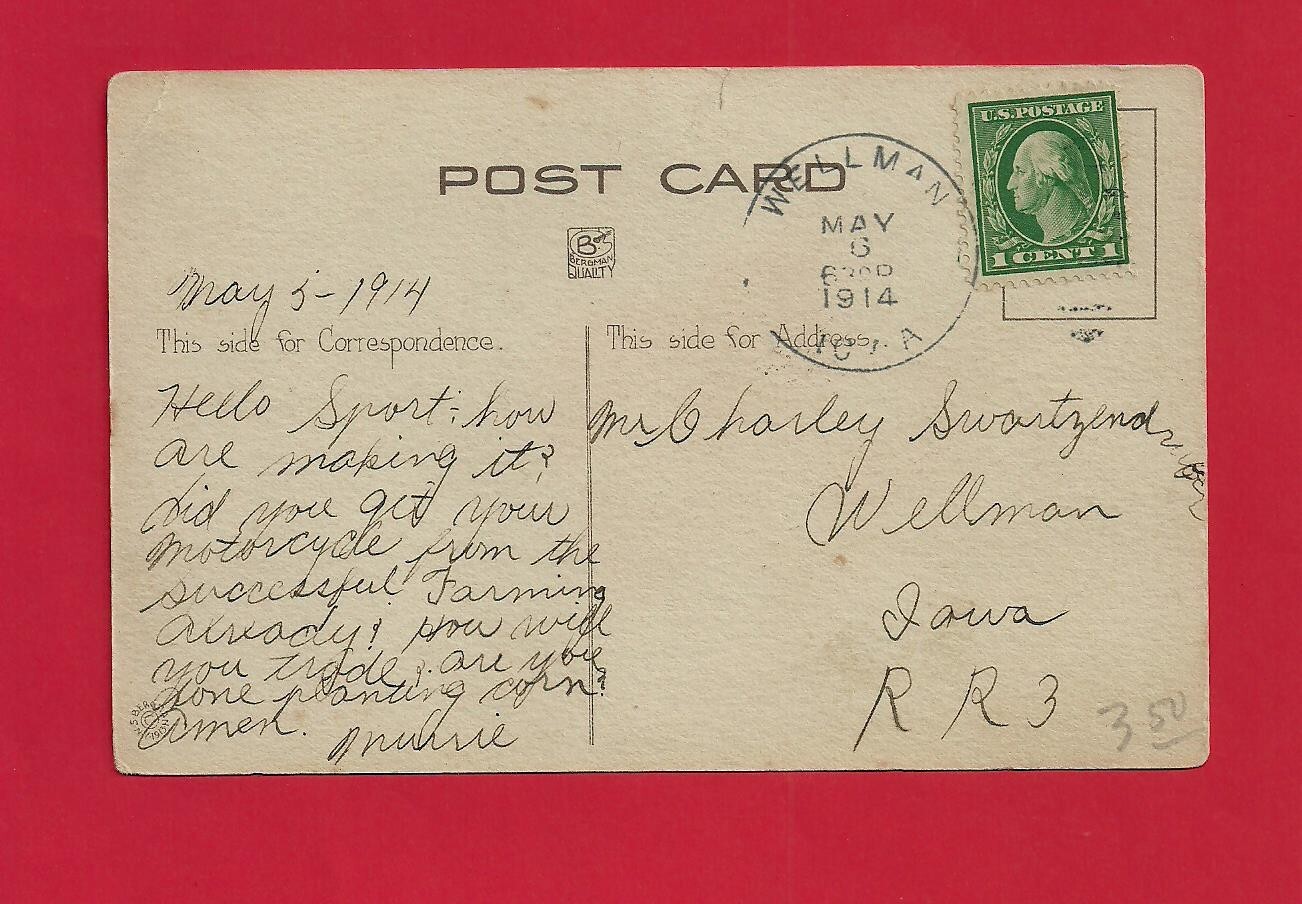 U.S. POSTAGE
1 CENT 1
POST CARD
WELLMAN
MAY
6
630P
1914
IOWA
BS
BERGMAN
QUALITY
May 5 - 1914
This side for Correspondence.
Hello Sport; how
are making it?
did you get your
motorcycle from the
successful Farming
already? How will
you trade? are you
done planting corn?
Amen.
This side for Address.
Mr Charley Swartzendruber
Wellman
Iowa
R R 3
3 50